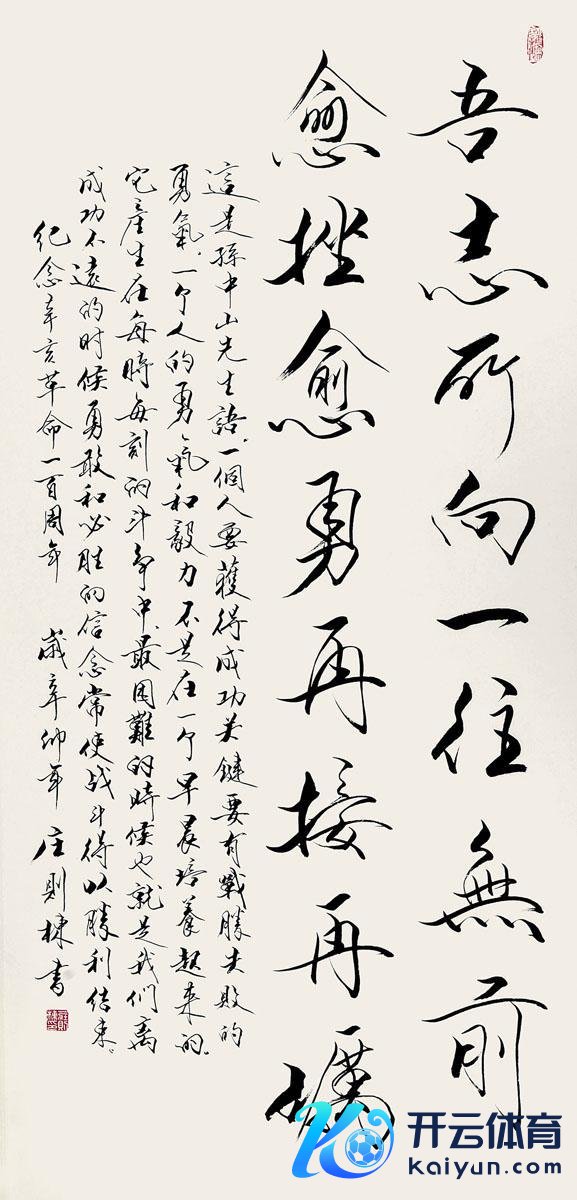 吾志所向一往無前
愈挫愈勇再接再礪
這是孫中山先生語.一個人要獲得成功关鍵要有戰勝失敗的
勇氣.一个人的勇氣和毅力不是在一个早晨培養起来的.
它產生在每時每刻的斗争中.最困難的時候也就是我们离
成功不遠的时候勇敢和必胜的信念常使战斗得以勝利结束.
纪念辛亥革命一百周年 歲辛卯年 庄则棟書
开云体育
kaiyun.com